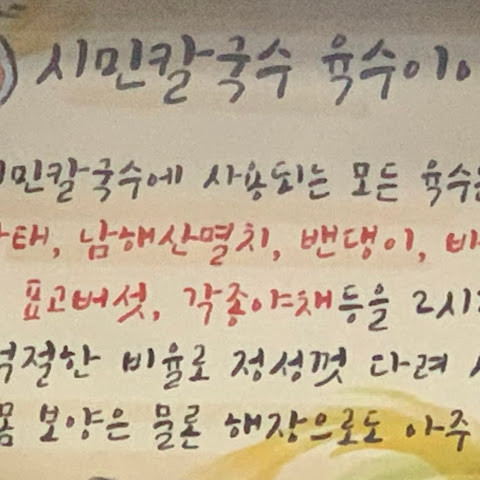 시민칼국수 육수이
민칼국수에 사용되는 모든 육수
태, 남해산멸치, 밴댕이,
표고버섯, 각종야채등을 2시
적절한 비율로 정성껏 다려
몸 보양은 물론 해장으로도 아주